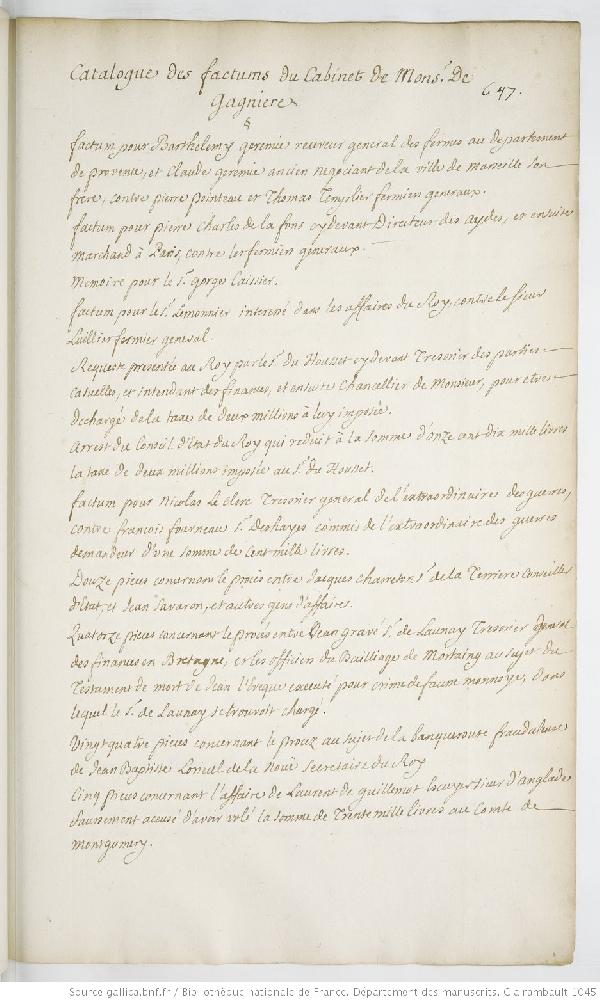 Catalogue des factums du Cabinet de Mons.r De
Gagniere
647.
factum pour Barthelemy geremie receveur general des fermes au departement
de provence, et Claude geremie ancien negociant de la ville de marseille son
frere, contre pierre pointeau et Thomas Templier fermiers generaux.
factum pour pierre Charles de la fons cydevant Directeur des aydes, et ensuite
marchand à Paris, contre les fermiers generaux.
Memoire pour le s.r gorge Caissier.
factum pour le s.r Lemonnier interessé dans les affaires du Roy, contre le sieur
Luillier fermier general.
Requeste presentée au Roy par le s.r du Housset cydevant Tresorier des parties
Casuelles, et intendant des finances, et ensuite Chancellier de Monsieur, pour estre
dechargé de la taxe de deux millions à luy imposée.
Arrest du Conseil d'Etat du Roy qui reduit à la somme d'onze cent dix mille livres
la taxe de deux millions imposée au s.r du Housset.
factum pour Nicolas le Clerc Tresorier general de l'extraordinaire des guerres,
contre francois fourneau s.r Deshayes commis de l'extraordinaire des guerres
demandeur d'une somme de Cent mille livres.
Douze pieces concernant le procès entre Jacques charreton s.r de la Terriere Conseiller
d'Etat, et Jean Savaron, et autres gens d'affaires.
Quatorze pieces concernant le procès entre Jean gravé s.r de Launay Tresorier general
des finances en Bretagne, et les officiers du Bailliage de Mortaing au sujet du
Testament de mort de Jean l'Evêque executé pour crime de fausse monnoye, dans
lequel le s.r de Launay se trouvoit chargé.
Vingt quatre pieces concernant le procez au sujet de la banqueroute frauduleuse
de Jean Baptiste de la Noüe Secretaire du Roy
Cinq pieces concernant l'affaire de Laurent de guillemot Escuyer sieur d'Anglade
faussement accusé d'avoir volé la somme de Trente mille livres au Comte de
Montgomery.
Source gallica.bnf.fr / Bibliothèque nationale de France. Département des manuscrits. Clairambault 1045